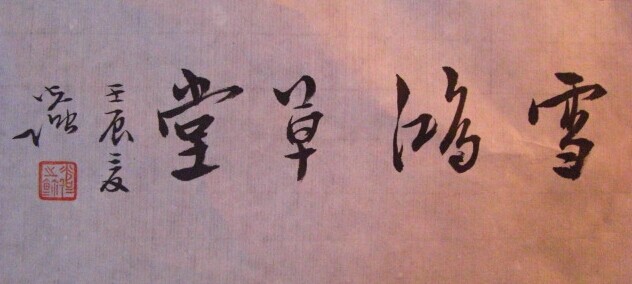 雪鸿草堂
壬辰夏